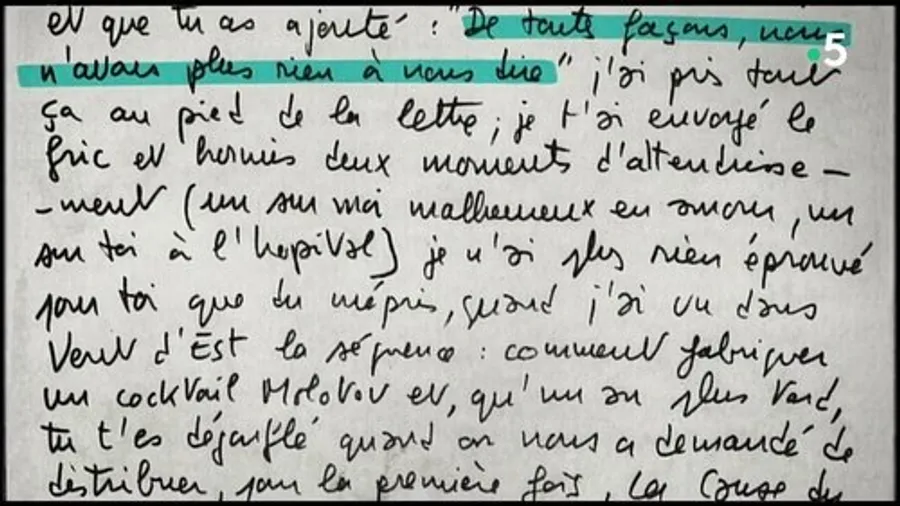 et que tu as ajouté : "De toute façons, nous
5
n'avons plus rien à nous dire" j'ai pris tout
ça au pied de la lettre ; je t'ai envoyé le
fric et hormis deux moments d'attendrisse-
-ment (un sur moi malheureux en amour, un
sur toi à l'hopital) je n'ai plus rien éprouvé
pour toi que du mépris, quand j'ai vu dans
Vent d'Est la séquence : comment fabriquer
un cocktail Molotov et, qu'un an plus tard,
tu t'es dégonflé quand on nous a demandé de
distribuer, pour la première fois, La Cause du